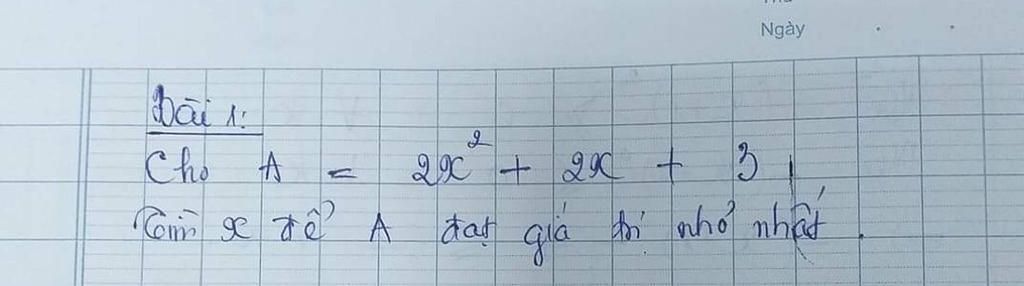 Ngày
Bài 1:
Cho A = 2x² + 2x + 3,
Tìm x để A đạt giá trị nhỏ nhất.